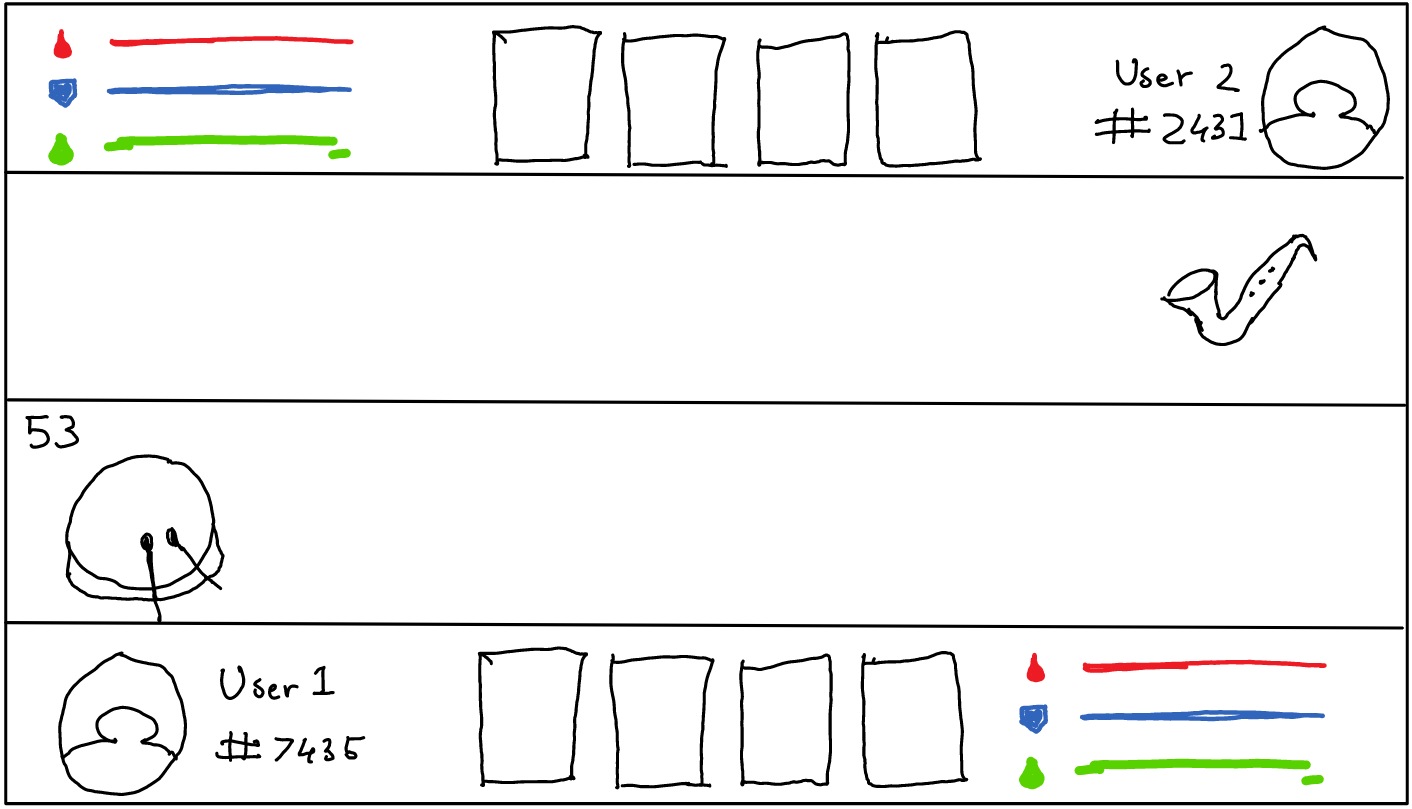 User 2
#2431
53
User 1
#7435